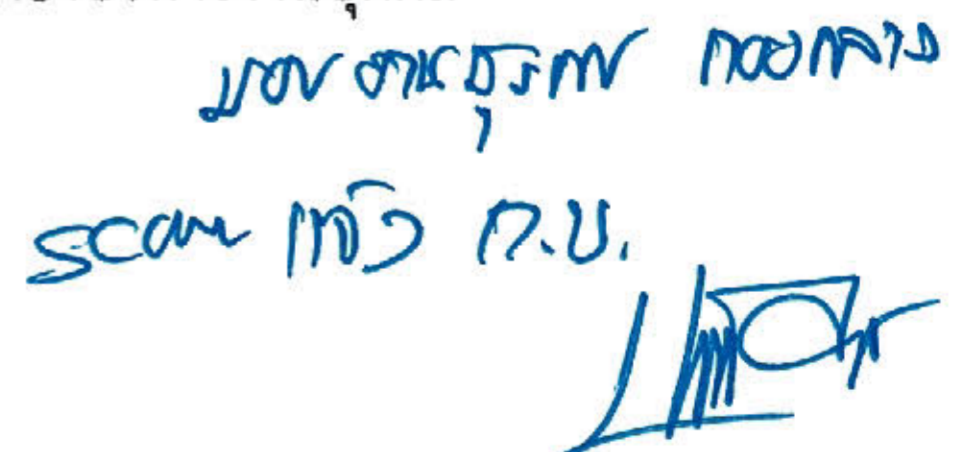 มอบ งานธุรการ กองกลาง
scan แจ้ง ก.บ.